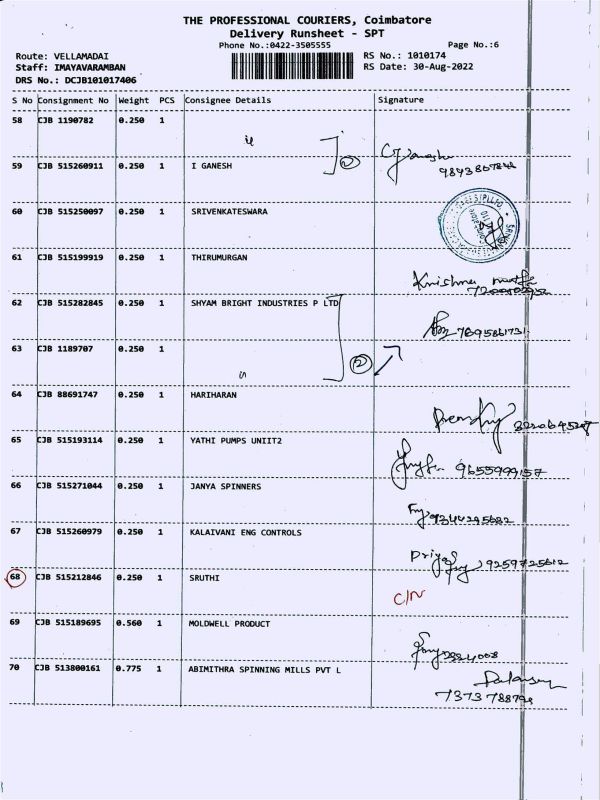 THE PROFESSIONAL COURIERS, Coimbatore
Delivery Runsheet - SPT
Phone No.:0422-3505555 Page No.:6
Route: VELLAMADAI RS No.: 1010174
Staff: IMAYAVARAMBAN RS Date: 30-Aug-2022
DRS No.: DCJB101017406
S No Consignment No Weight PCS Consignee Details Signature
58 CJB 1190782 0.250 1
59 CJB 515260911 0.250 1 I GANESH
60 CJB 515250097 0.250 1 SRIVENKATESWARA
61 CJB 515199919 0.250 1 THIRUMURGAN
Krishna
62 CJB 515282845 0.250 1 SHYAM BRIGHT INDUSTRIES P LTD
7695861731
63 CJB 1189707 0.250 1
2
64 CJB 88691747 0.250 1 HARIHARAN
65 CJB 515193114 0.250 1 YATHI PUMPS UNIIT2
9655999157
66 CJB 515271044 0.250 1 JANYA SPINNERS
9344295682
67 CJB 515260979 0.250 1 KALAIVANI ENG CONTROLS
Priya 9259725612
68 CJB 515212846 0.250 1 SRUTHI
C/N
69 CJB 515189695 0.560 1 MOLDWELL PRODUCT
70 CJB 513800161 0.775 1 ABIMITHRA SPINNING MILLS PVT L